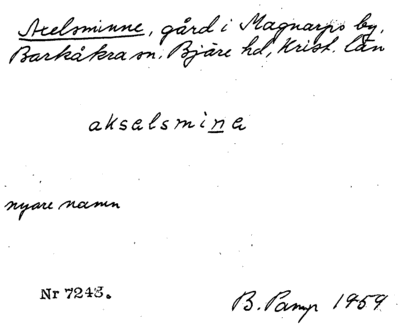 Axelsminne, gård i Magnarps by,
Barkåkra sn. Bjäre hd, Krist. län
akselsmina
nyare namn
Nr 7243.
B. Pamp 1959